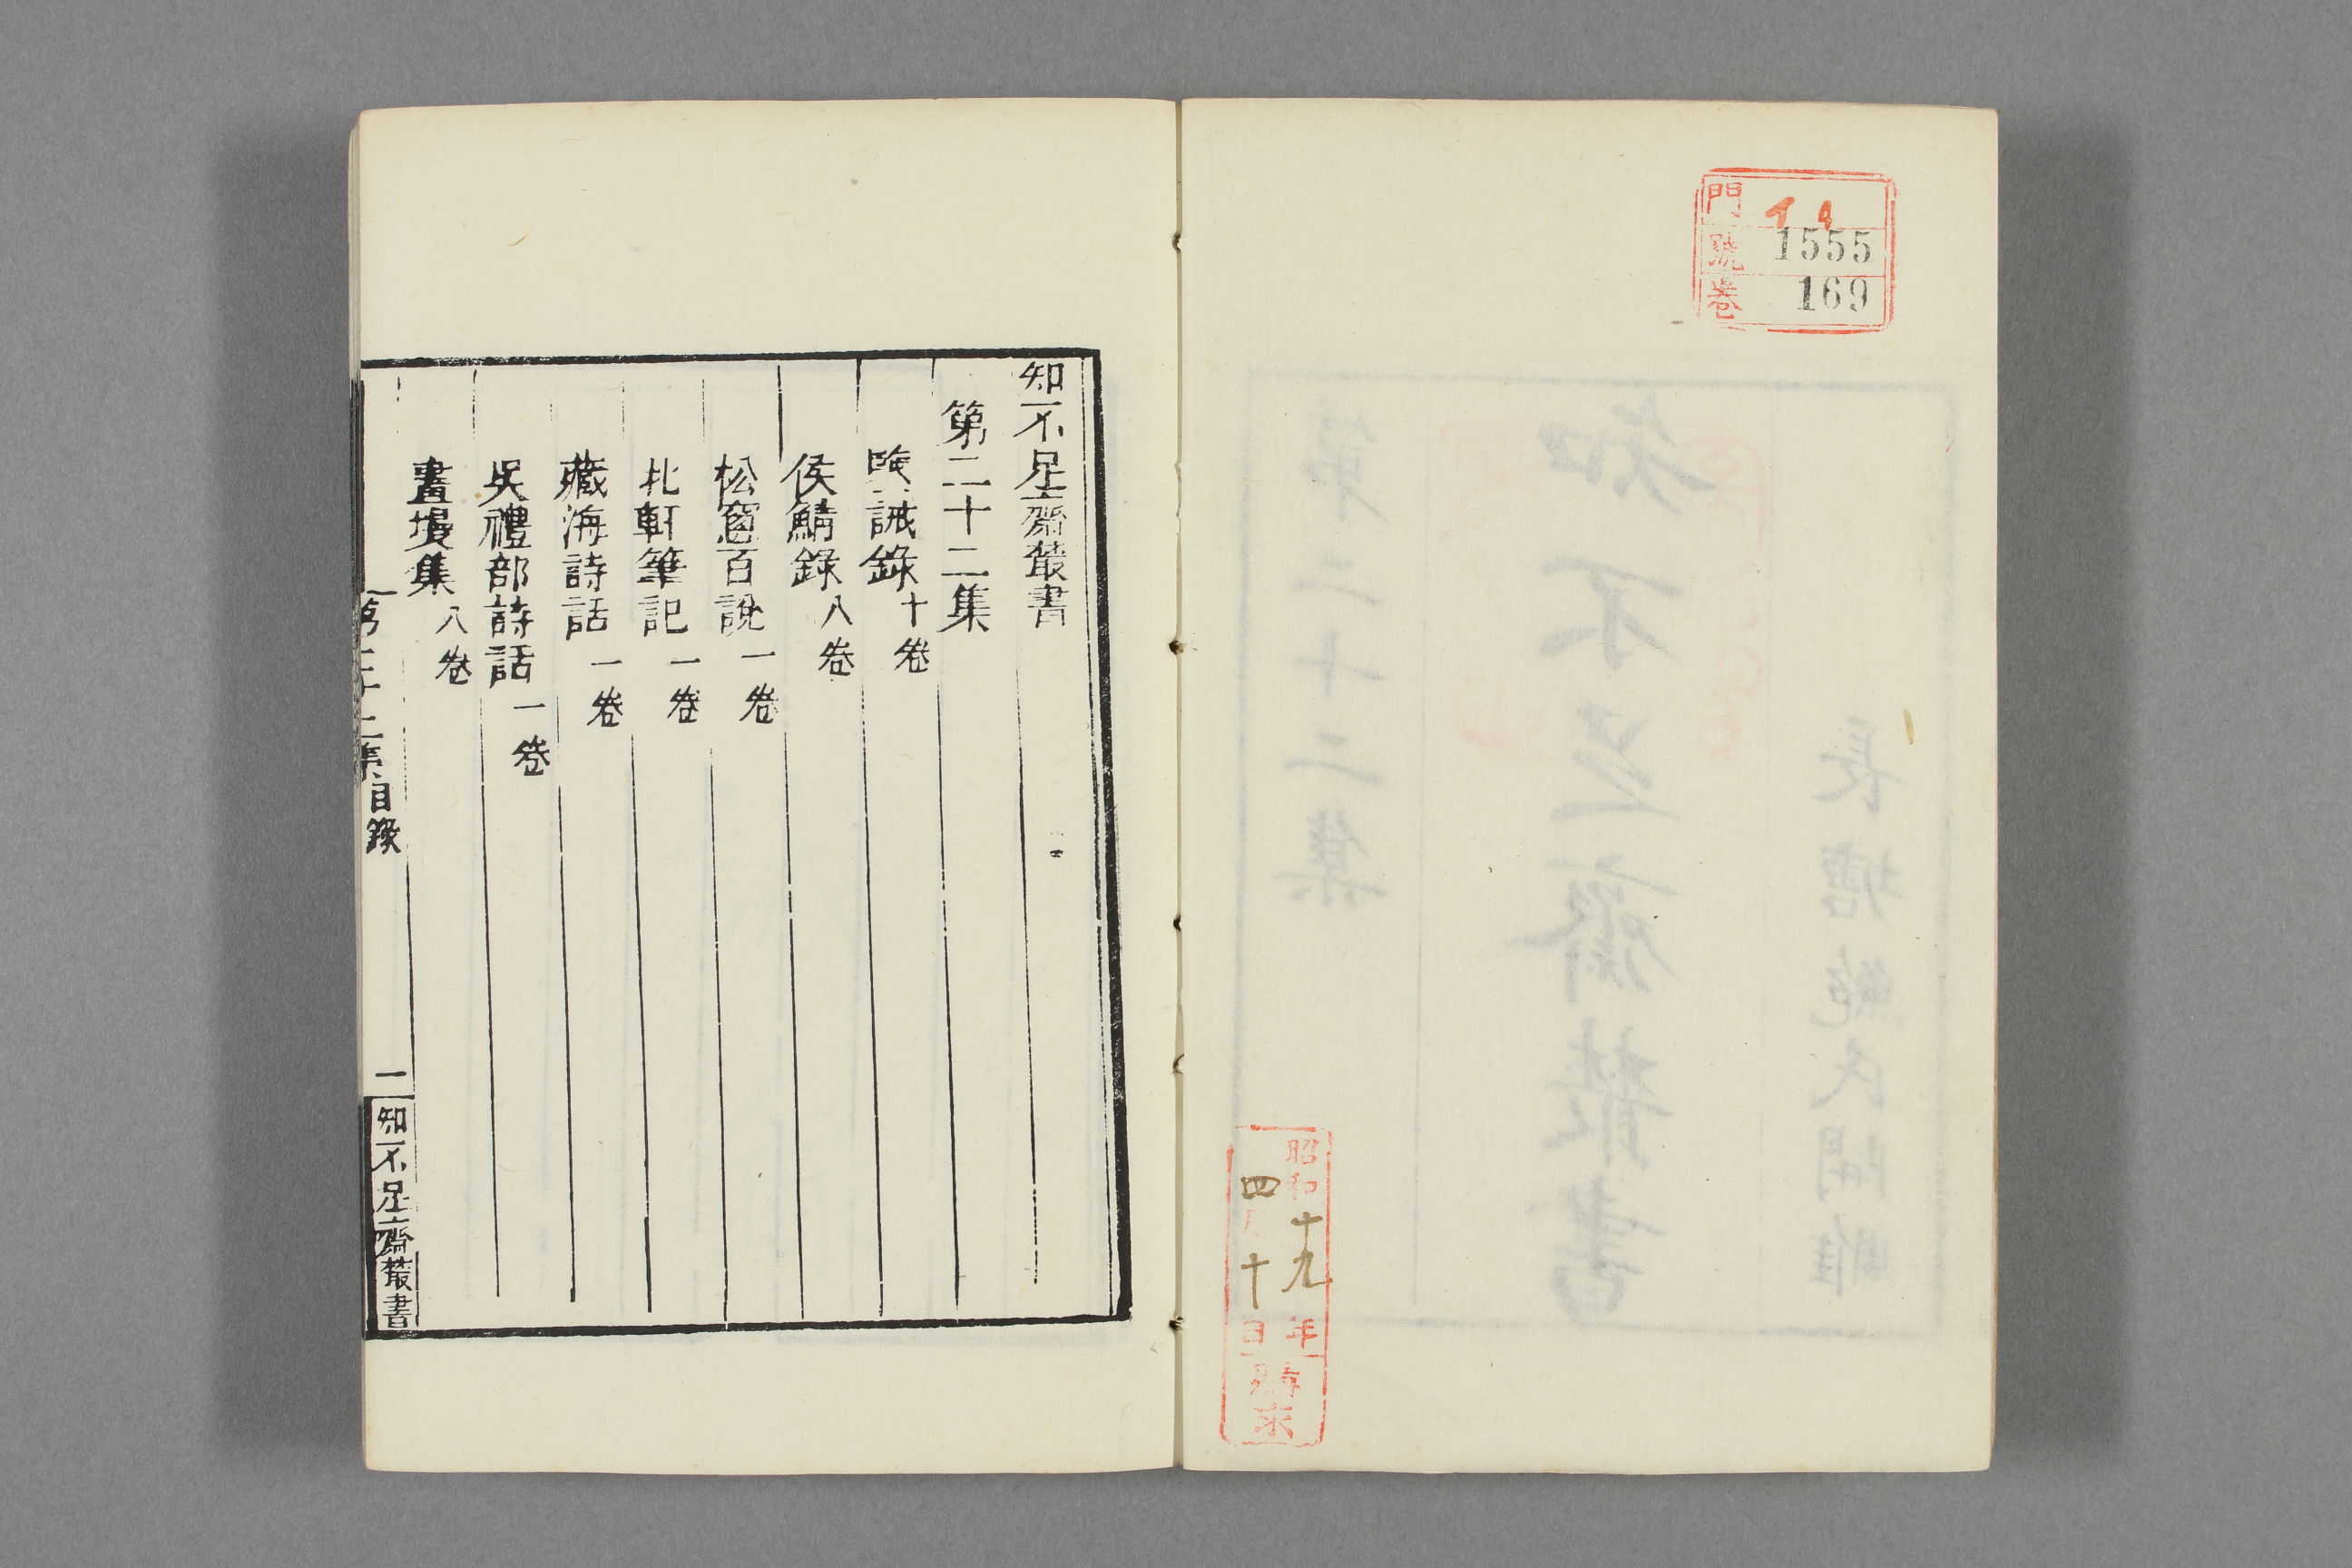 門 イ 4
號 1555
卷 169
昭和十九年
四月十日
購求
知不足齋叢書
第二十二集
鑒誡錄十卷
侯鯖錄八卷
松窗百說一卷
北軒筆記一卷
藏海詩話一卷
吳禮部詩話一卷
畫墁集八卷
第二十二集目錄
一
知不足齋叢書